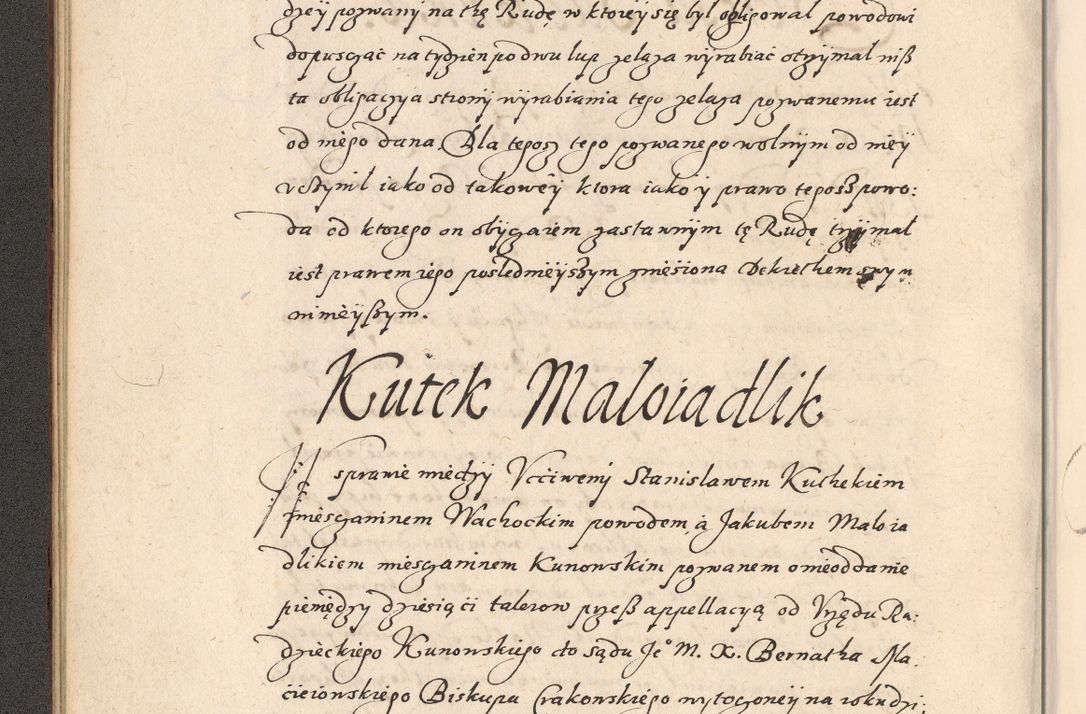 dzeÿ pozwanÿ na thę Rudę w ktoreÿ się bÿl obligowal powodowi
dopusczać na tÿdzien po dwu lup zelaza wÿrabiać otrzÿmal niß
ta obligacÿa stronÿ wÿrabiania tego zelaza pozwanemu iest
od niego dana Dla tegosz tego pozwanego wolnÿm od nieÿ
vcżÿnil iako od takoweÿ ktora iako ÿ prawo tegoß powo:
da od ktorego on obÿczaiem zastawnÿm tę Rudę trzÿmal
iest prawem iego poslednieÿszÿm zniesiona Dekrethem swÿm
ninieÿszÿm.
Kutek Maloiadlik
W sprawie miedzÿ Vcciwemÿ Stanislawem Kuthekiem
miesczaninem Wachockim powodem, a Jakubem Maloia
dlikiem miesczaninem Kunowskim pozwanem o nieoddanie
pieniędzÿ dziesiąci talerow przeß appellacÿą od Vrzędu Ra:
dzieckiego Kunowskiego do sądu Je° M. X. Bernatha Ma
cieiowskiego Biskupa Crakowskiego wÿtoczoneÿ na roku dzi: